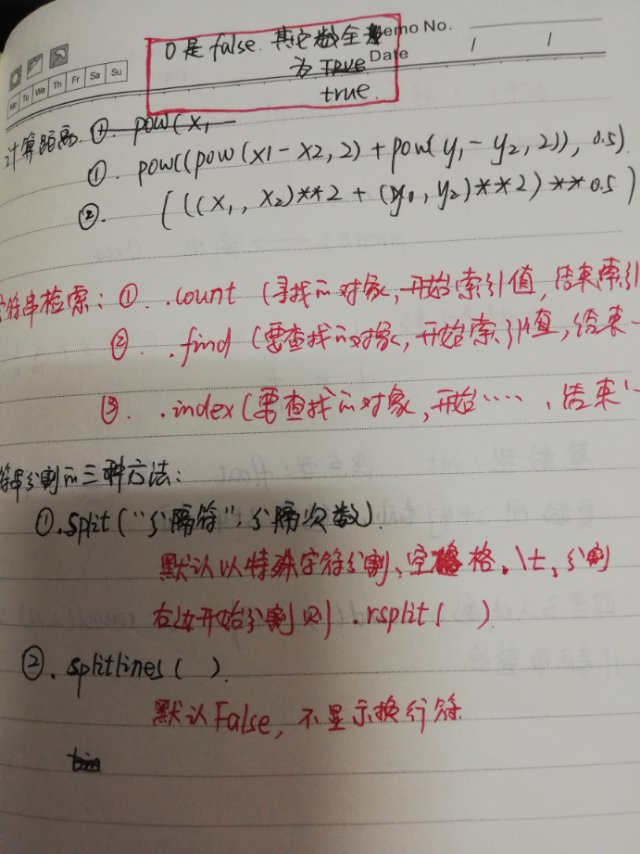 0是false.其它数全
为 true
true.
Memo No.
Date / /
Mo Tu We Th Fr Sa Su
计算距离 ① pow(x1
①. pow((pow(x1-x2,2)+pow(y1-y2,2)),0.5).
②. (((x1,x2)**2+(y1,y2)**2)**0.5)
字符串检索:①. .count(寻找的对象,开始索引值,结束索引
②. .find(要查找的对象,开始索引值,结束
③. .index(要查找的对象,开始……,结束…
符串分割的三种方法:
①.split("分隔符",分隔次数).
默认以特殊字符分割、空格、\t、分割
右边开始分割则.rsplit( ).
②.splitlines( ).
默认False,不显示换行符